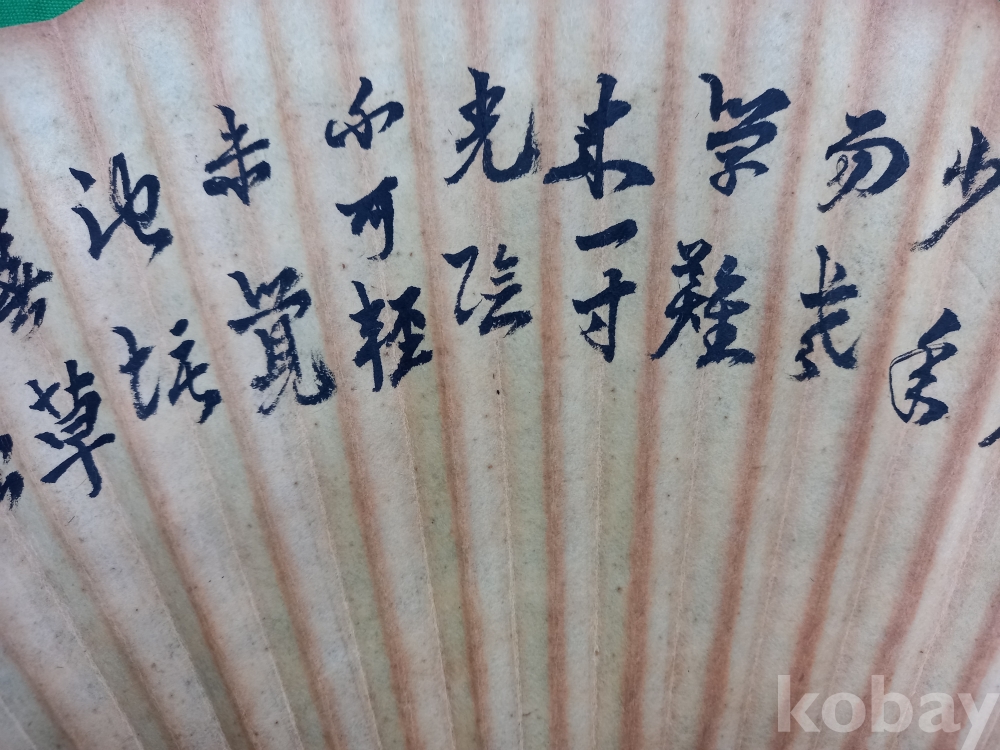 少年
易老
學難
一寸
光陰
不可輕
未覺
池塘
春草
kobay